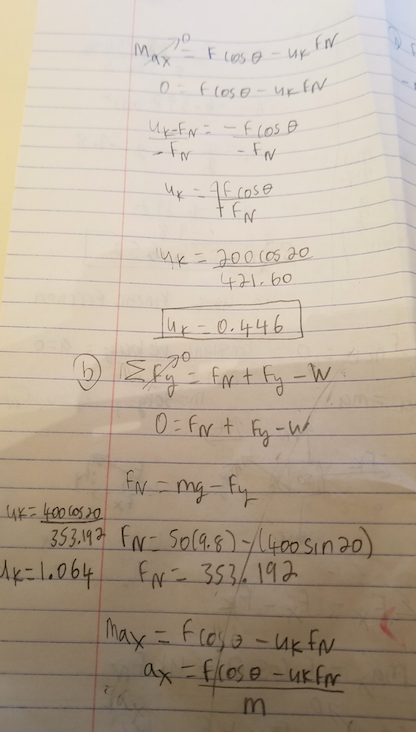 Max⁰ = Fcosθ - ukFN
0 = Fcosθ - ukFN
uk-FN = -Fcosθ
-FN -FN
uk = Fcosθ
FN
uk = 200cos20
421.60
uk = 0.446
b) ΣFy⁰ = FN + Fy - W
0 = FN + Fy - W
FN = mg - Fy
uk = 400cos20
353.192
uk = 1.064
FN = 50(9.8) - (400sin20)
FN = 353.192
Max = Fcosθ - ukFN
ax = Fcosθ - ukFN
m